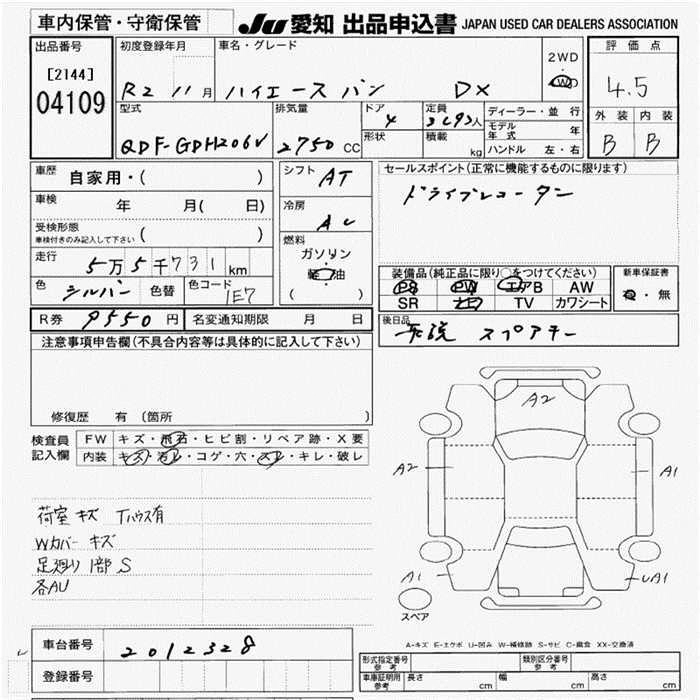 車内保管・守衛保管
JU 愛知 出品申込書 JAPAN USED CAR DEALERS ASSOCIATION
出品番号
[2144]
04109
初度登録年月
R2 11月
車名・グレード
ハイエース バン DX
2WD
4WD
評価点
4.5
外装 内装
B B
型式
QDF-GDH206V
排気量
2750 CC
ドア
4
形状
定員
人
積載
kg
ディーラー・並行
モデル年式 年
ハンドル 左・右
車歴
自家用・( )
車検 年 月( 日)
受検形態
車検付きのみ記入して下さい ( )
走行
5万5千731km
色
シルバー
色替
色コード
1E7
シフト
AT
冷房
AC
燃料
ガソリン
軽油
( )
セールスポイント(正常に機能するものに限ります)
ドライブレコーダー
装備品(純正品に限り○をつけてください)
PS PW エアB AW
SR ナビ TV カワシート
新車保証書
有・無
R券 9550円
名変通知期限 月 日
後日品
スペアキー
注意事項申告欄(不具合内容等は具体的に記入して下さい)
修復歴 有 (箇所 )
検査員
記入欄
FW キズ・飛石・ヒビ割・リペア跡・X要
内装 キズ・汚レ・コゲ・穴・スレ・キレ・破レ
荷室 キズ Tハウス有
Wカバー キズ
足廻り 1部 S
各AU
A2
A2
A1
A1
UA1
スペア
A-キズ E-エクボ U-凹み W-補修跡 S-サビ C-腐食 XX-交換済
車台番号
2012328
登録番号
形式指定番号
参考
類別区分番号
参考
車庫証明用
参考
長さ cm 幅 cm 高さ cm